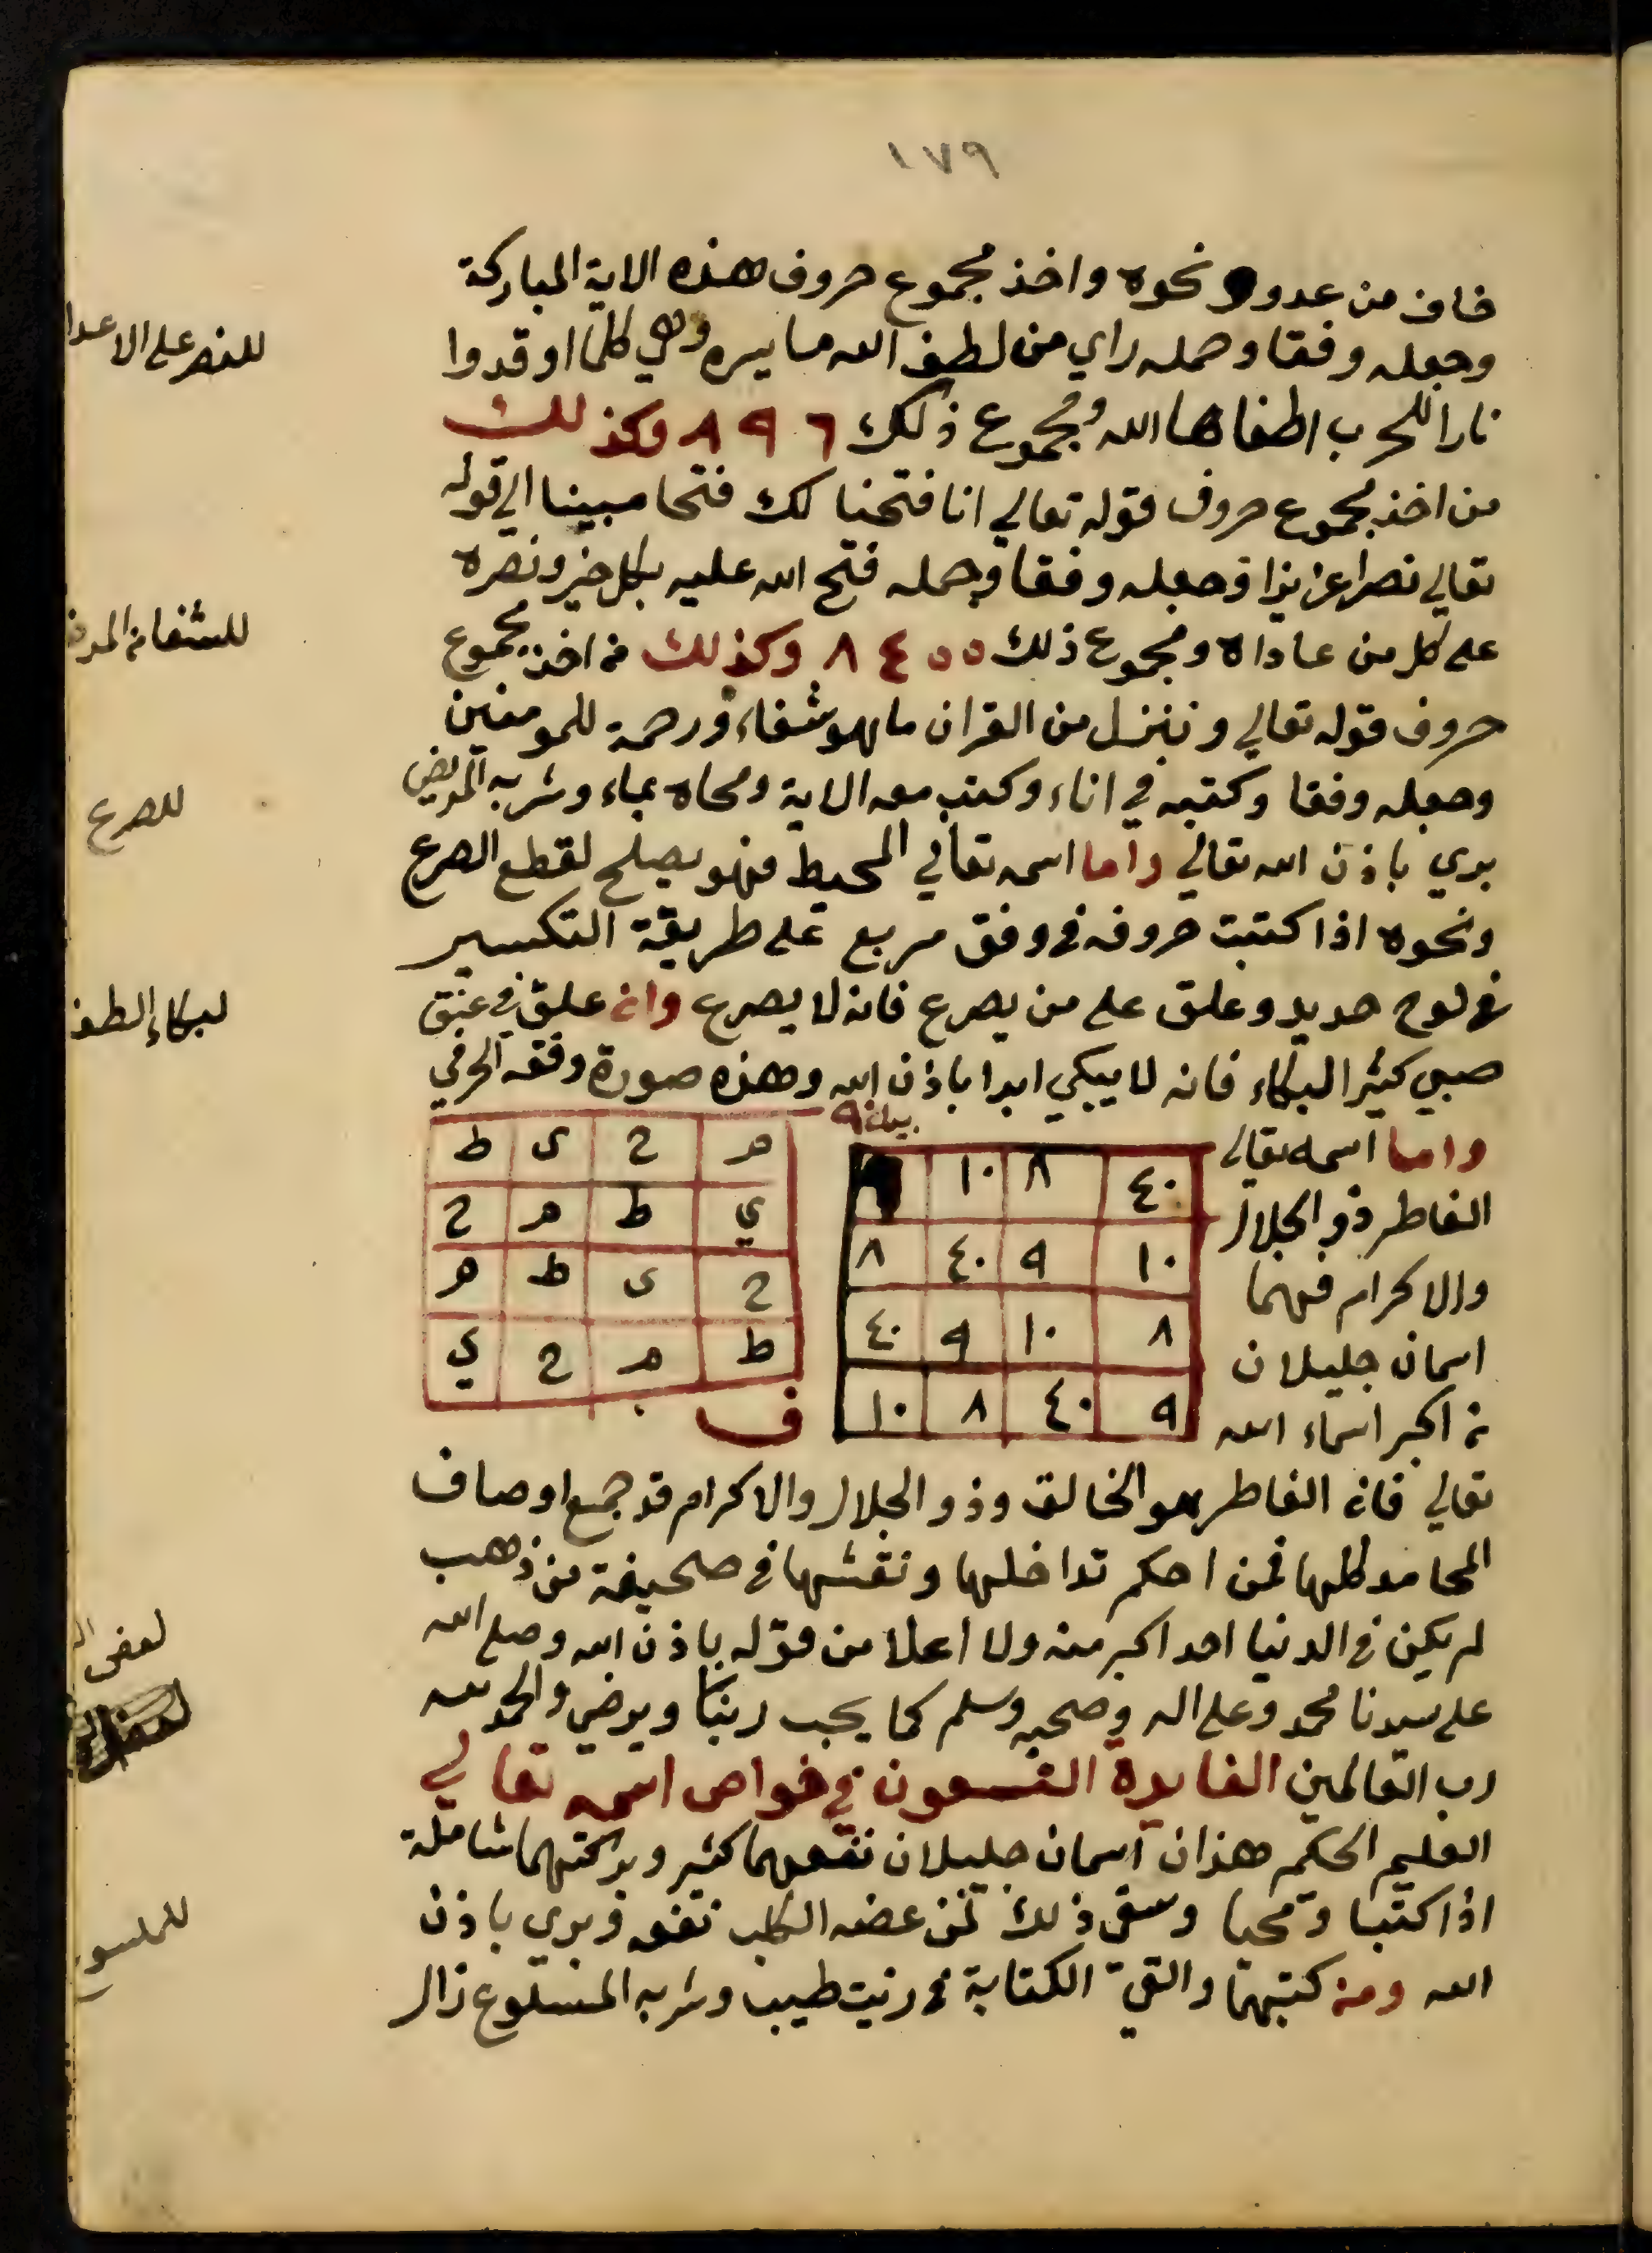 ١٧٩
خاف من عدو ونحوه واخذ مجموع حروف هذه الاية المباركة
وجعله وفقا وحمله راي من لطف الله ما يسره وهي كلما اوقدوا
نارا للحرب اطفاها الله ومجموع ذلك ٨٩٦ وكذلك
من اخذ مجموع حروف قوله تعالي انا فتحنا لك فتحا مبينا الي قوله
تعالي نصرا عزيزا وجعله وفقا وحمله فتح الله عليه بكل خير ونصره
علي كل من عاداه ومجموع ذلك ٨٤٥٥ وكذلك من اخذ مجموع
حروف قوله تعالي وننزل من القران ما هو شفاء ورحمة للمومنين
وجعله وفقا وكتبه في اناء وكتب معه الاية ومحاه بماء وشربه المريض
بري باذن الله تعالي واما اسمه تعالي المحيط فهو يصلح لقطع الصرع
ونحوه اذا كتبت حروفه في وفق مربع علي طريقة التكسير
في لوح حديد وعلق علي من يصرع فانه لا يصرع وان علق في عنق
صبي كثير البكاء فانه لا يبكي ابدا باذن الله وهذه صورة وفقه الحرفي
واما اسمه تعالي
الفاطر ذو الجلال
والاكرام فهما
اسمان جليلان
من اكبر اسماء الله
بيانه ٩
٤٠ ٨ ١٠
١٠ ٩ ٤٠ ٨
٨ ١٠ ٩ ٤٠
٩ ٤٠ ٨ ١٠
م ح ى ط
ي ط م ح
ح ى ط م
ط م ح ي
ف
تعالي فان الفاطر هو الخالق وذو الجلال والاكرام قد جمع اوصاف
المحامد كلها فمن احكم تداخلها ونقشها في صحيفة من ذهب
لم يكن في الدنيا احد اكبر منه ولا اعلا من قوله باذن الله وصلي الله
علي سيدنا محمد وعلي اله وصحبه وسلم كما يحب ربنا ويرضي والحمد لله
رب العالمين الفايدة التسعون في خواص اسمه تعالي
العليم الحكيم هذان اسمان جليلان نفعهما كثير وبركتهما شاملة
اذا كتبا ومحيا وسقي ذلك لمن عضه الكلب نفعه وبري باذن
الله ومن كتبهما والقي الكتابة في زيت طيب وشربه الملسوع زال
للنصر علي الاعدا
للشفا من المر
للصرع
لبكاء الطفل
للملسوع